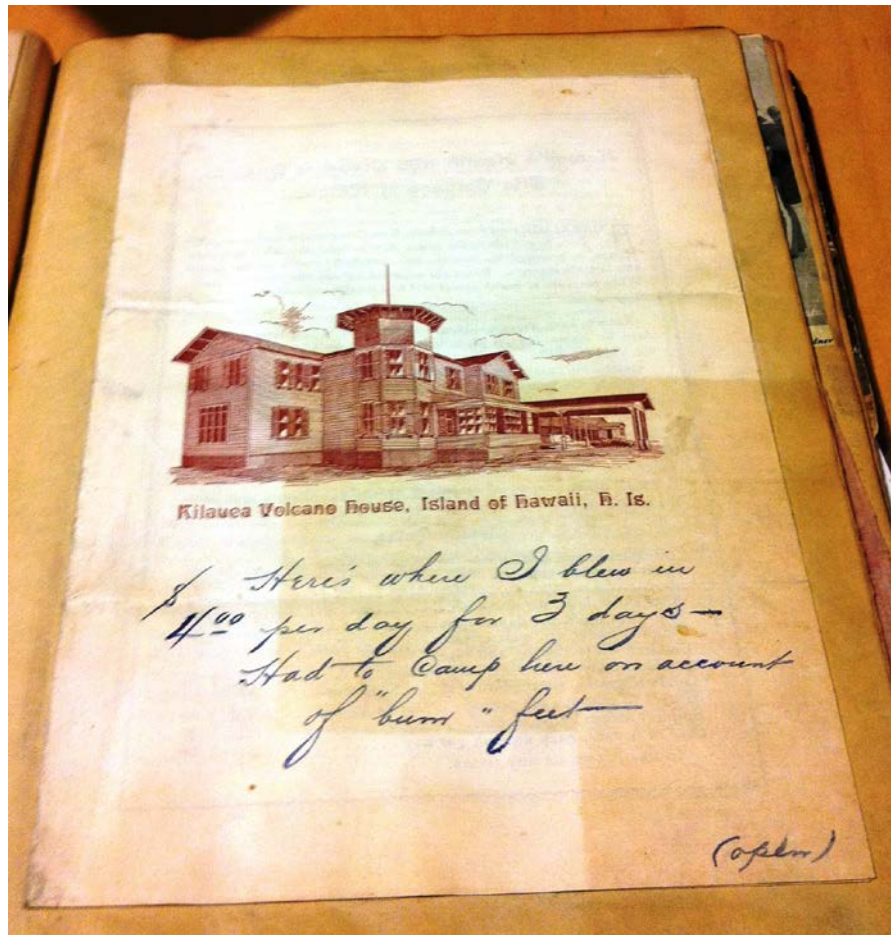 Kilauea Volcano House, Island of Hawaii, H. Is.
Here's where I blew in
$4.00 per day for 3 days—
Had to Camp here on account
of "bum" feet—
(open)
dner